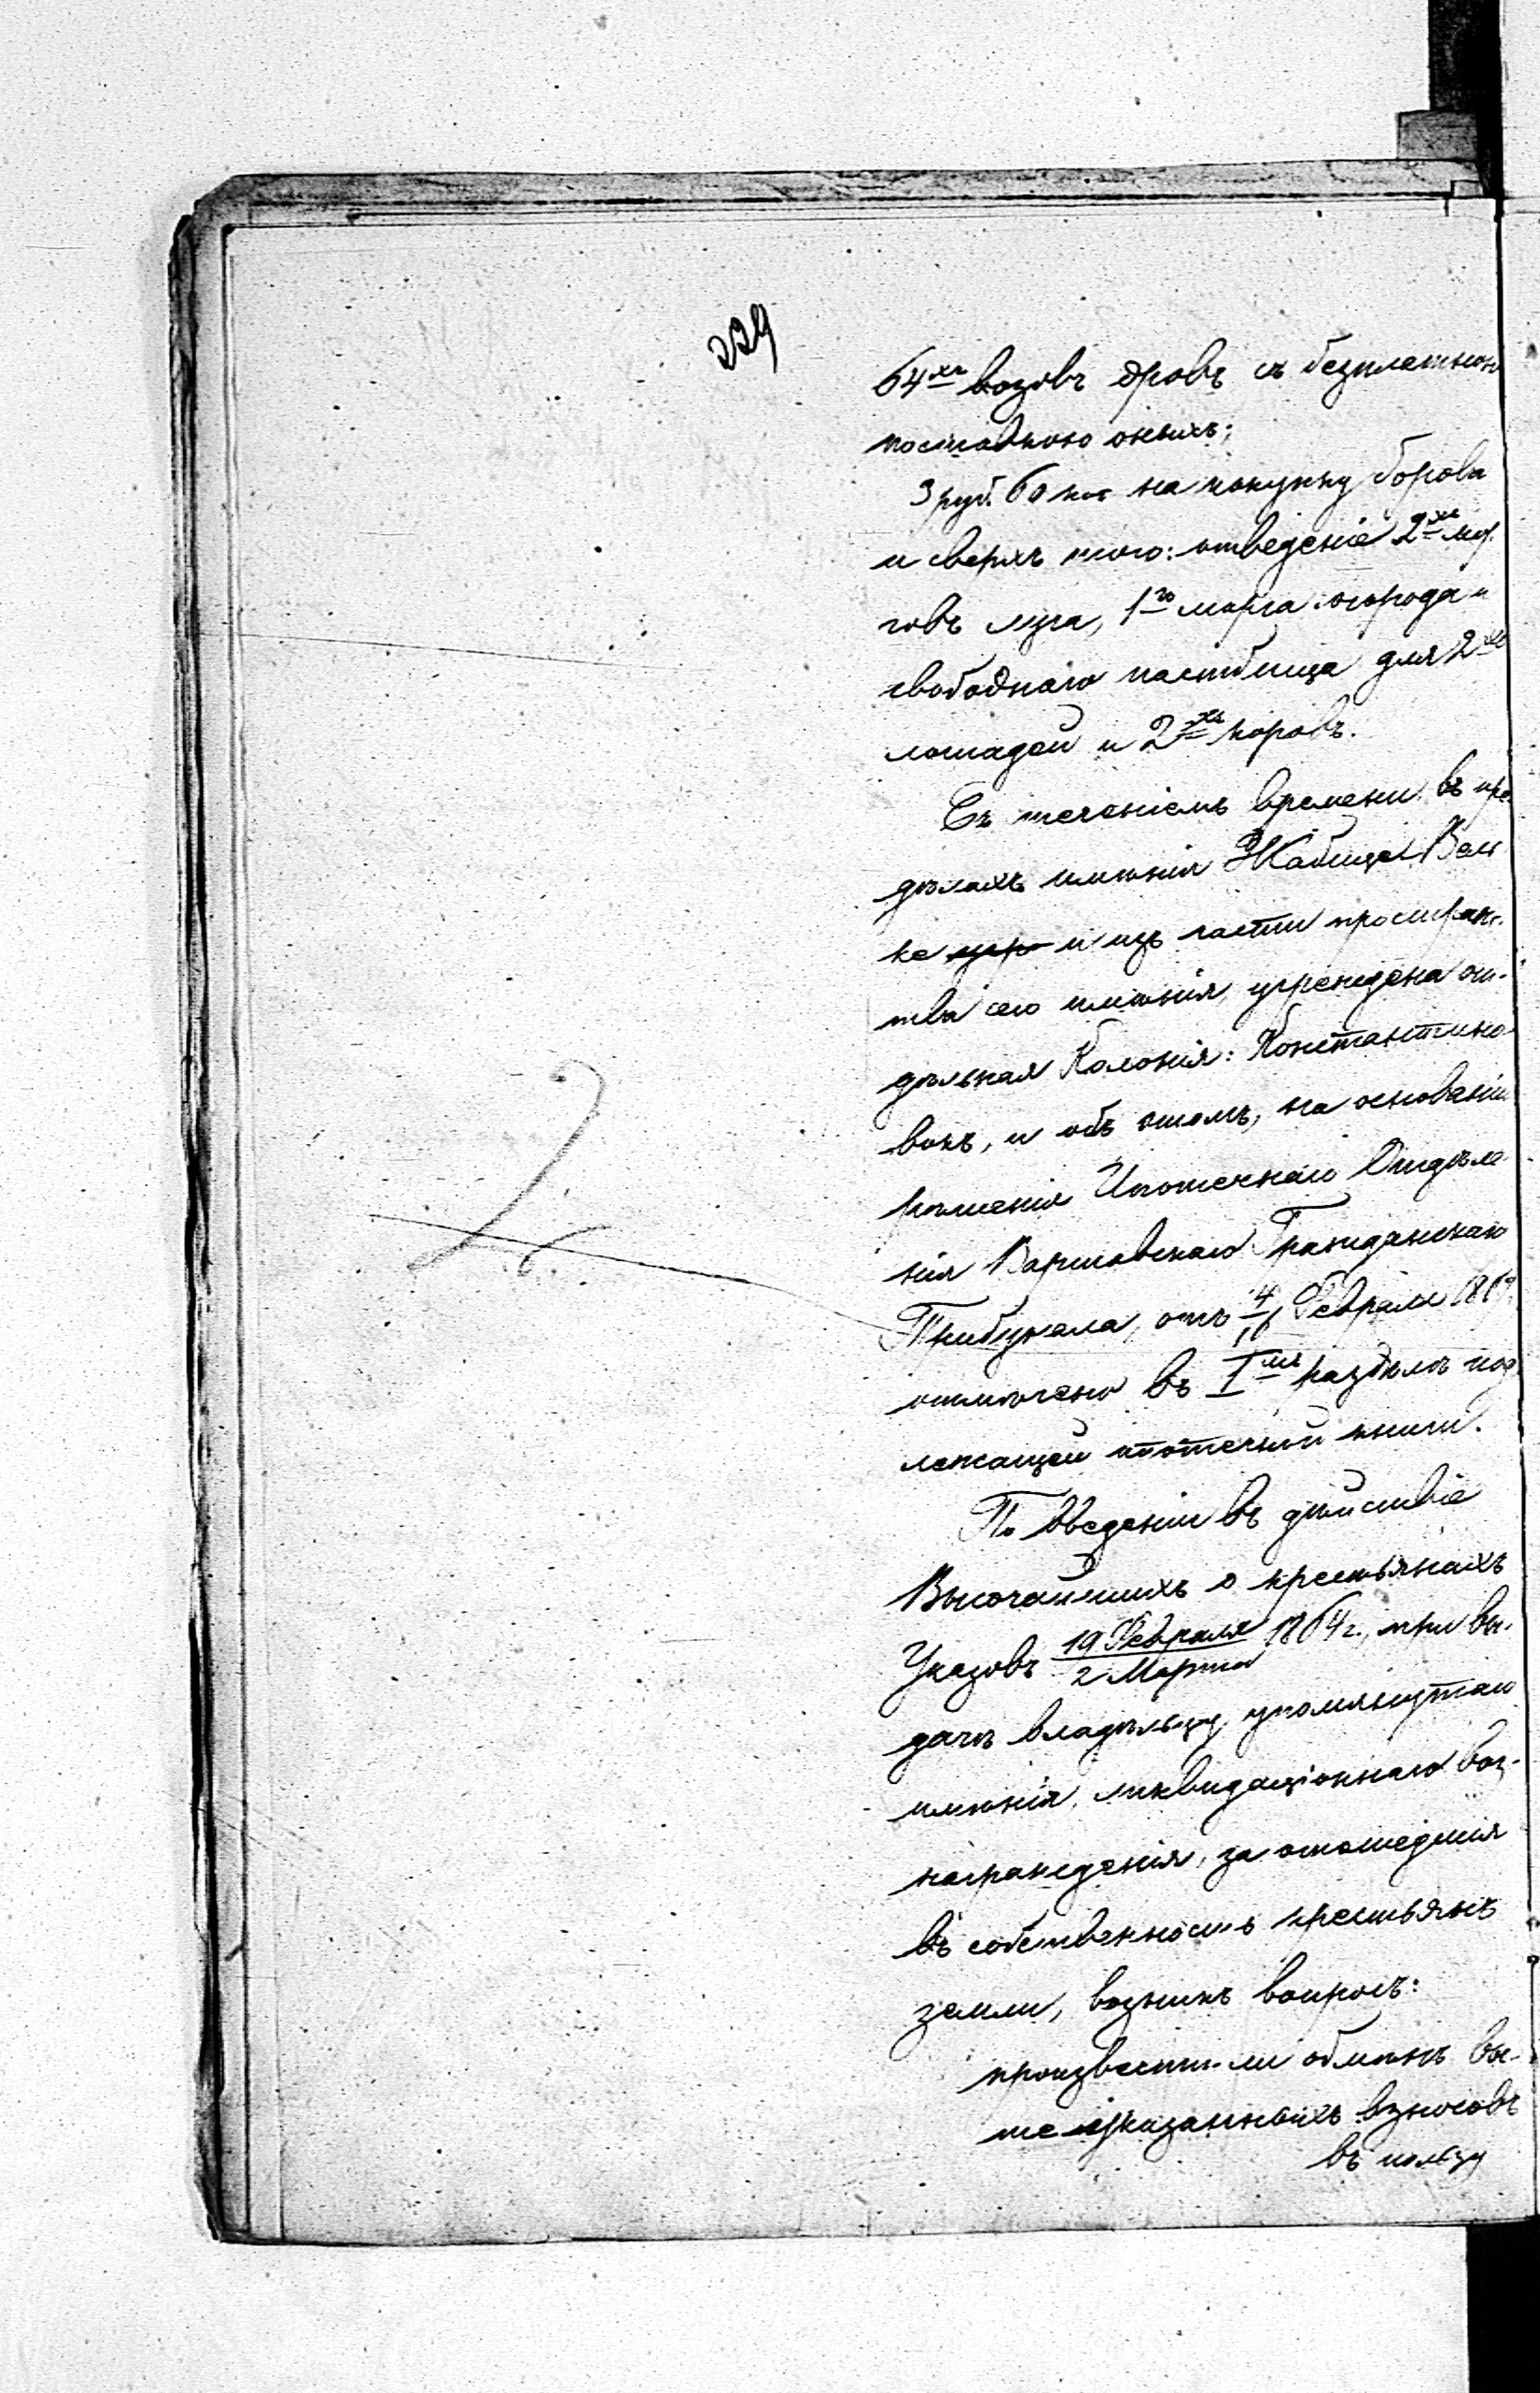 229
64хъ возовъ дровъ съ безплатною
поставкою оныхъ;
3 руб. 60 коп на покупку борова
и сверхъ того: отведеніе 2хъ мор
говъ луга, 1го морга огорода и
свободнаго пастбища для 2хъ
лошадей и 2хъ коровъ.
Съ теченіемъ времени въ пре
дѣлахъ имѣнія Жабице Вель
ке и изъ части простран-
тва сего имѣнія, учреждена от-
дѣльная Колонія: Константино
вокъ, и объ этомъ, на основаніи
рѣшенія Ипотечнаго Отдѣле
нія Варшавскаго Гражданскаго
Трибунала, отъ 4/16 Февраля
отмѣчено въ Iмъ раздѣлѣ под
лежащей ипотечной книги.
По введеніи въ дѣйствіе
Высочайшихъ о крестьянахъ
Указовъ 19 Февраля/2 Марта 1864 г., при вы-
дачѣ владѣльцу упомянутаго
имѣнія ликвидаціоннаго воз-
награжденія, за отошедшія
въ собственность крестьянъ
земли, возникъ вопросъ:
произвести-ли обмѣнъ вы-
ше указанныхъ взносовъ
въ пользу